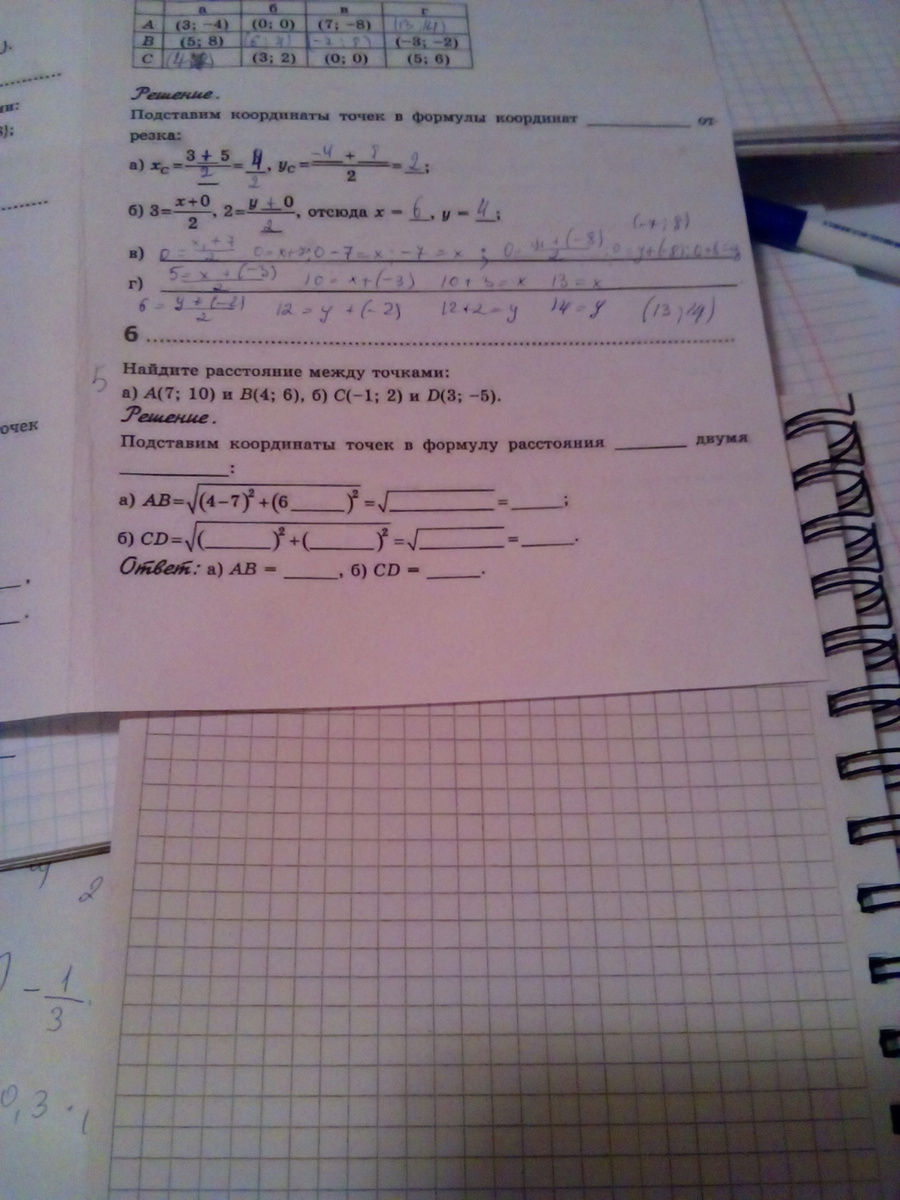 а б в г
А (3; −4) (0; 0) (7; −8) (13; 14)
В (5; 8) (6; 4) (-7; 8) (−3; −2)
С (4; 2) (3; 2) (0; 0) (5; 6)
Решение.
Подставим координаты точек в формулы координат ________ от-
резка:
а) x_C = (3 + 5)/2 = 4, y_C = (-4 + 8)/2 = 2;
б) 3 = (x+0)/2, 2 = (y + 0)/2, отсюда x = 6, y = 4;
(-7; 8)
в) 0 = 0-7 = x -7 = x ;
г) 5 = (x + (-3))/2 10 = x + (-3) 10 + 3 = x 13 = x
6 = (y + (-2))/2 12 = y + (-2) 12+2 = y 14 = y (13; 14)
6
5
Найдите расстояние между точками:
а) A(7; 10) и B(4; 6), б) C(−1; 2) и D(3; −5).
Решение.
Подставим координаты точек в формулу расстояния ______ двумя
________:
а) AB = √((4−7)² + (6 ____)²) = √____ = ____;
б) CD = √((____)² + (____)²) = √____ = ____.
Ответ: а) AB = ____, б) CD = ____.
очек
2
- 1/3
0,3 ·